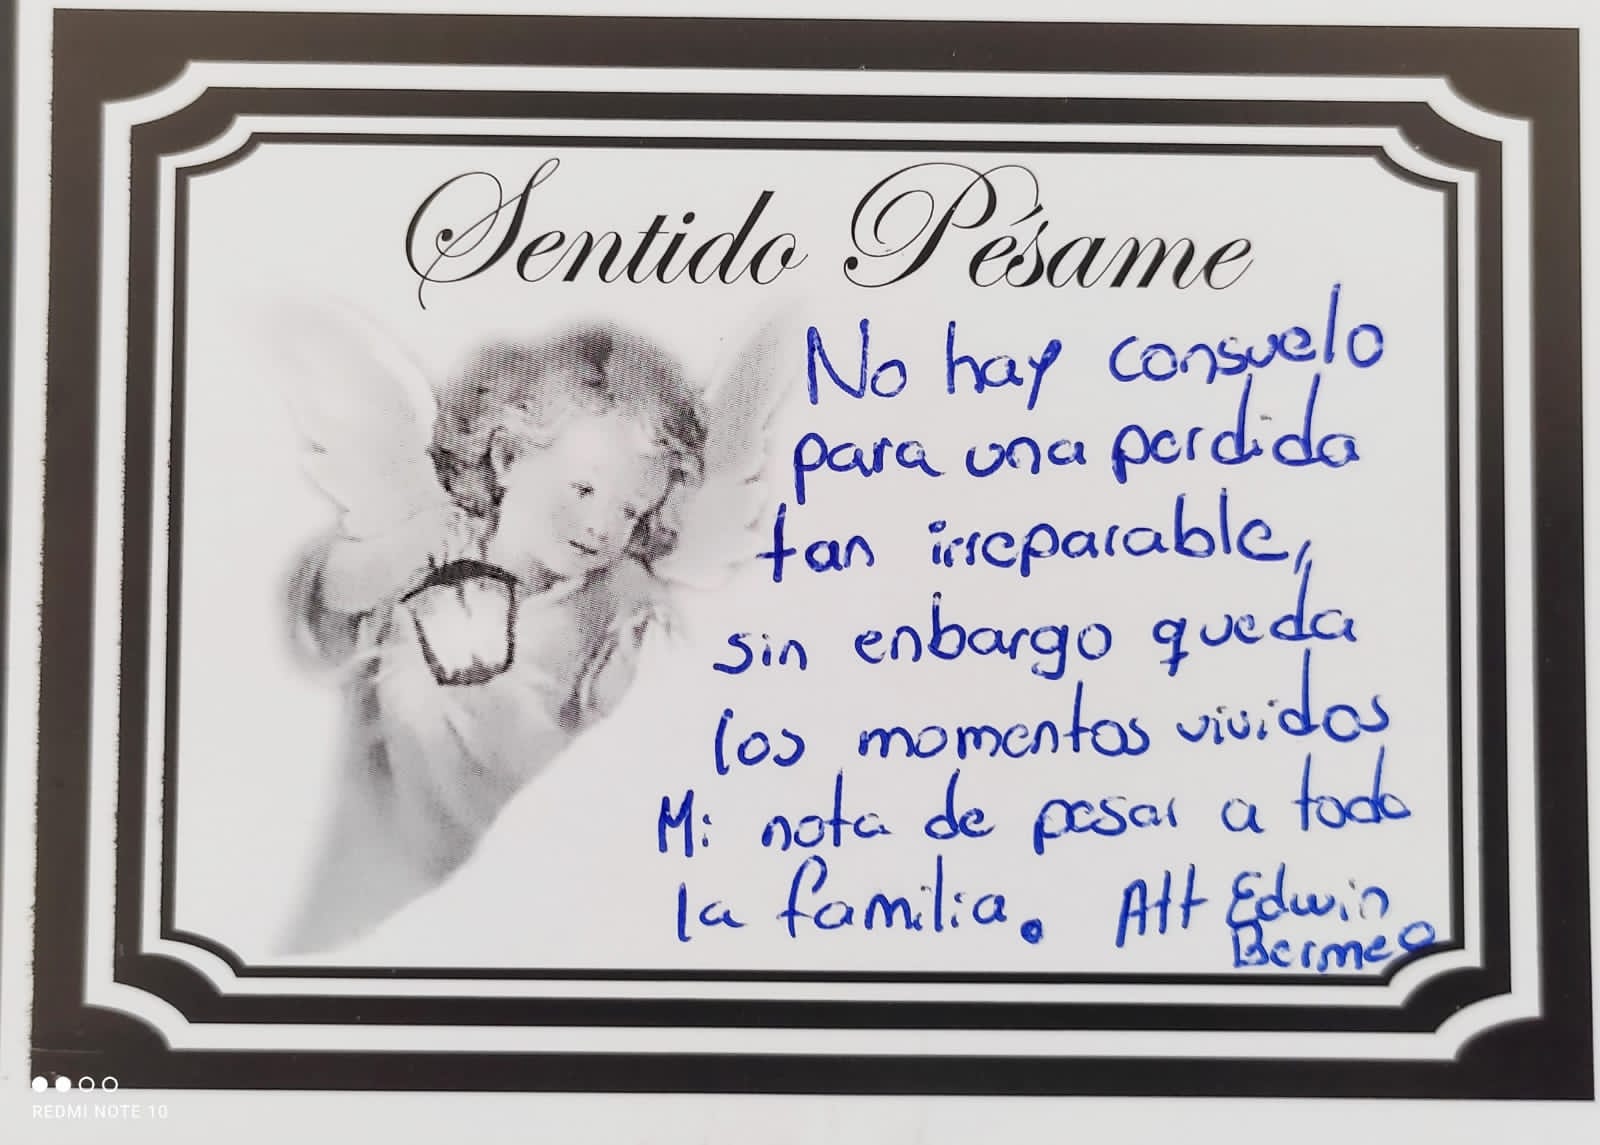 Sentido Pésame
No hay consuelo
para una perdida
tan irreparable,
sin enbargo queda
los momentos vividos
Mi nota de pesar a todo
la familia. Att Edwin
Bermeo
REDMI NOTE 10